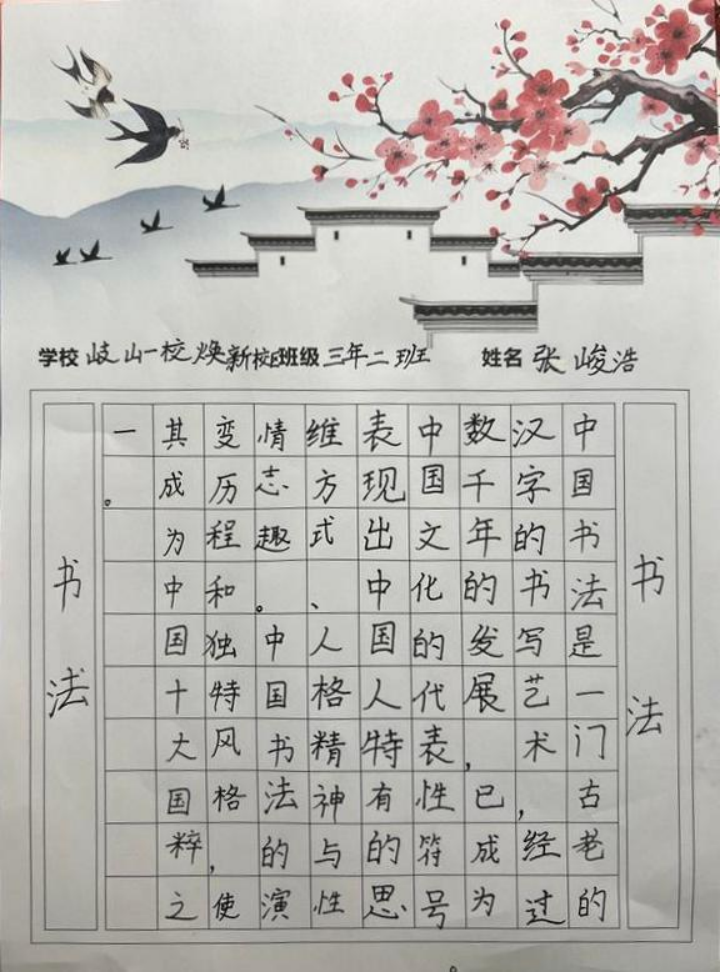 学校 岐山一校焕新校区 班级 三年二班 姓名 张峻浩
书法
中国书法是一门古老的
汉字的书写艺术，经过
数千年的发展，已成为
中国文化的代表性符号
表现出中国人特有的思
维方式、人格精神与性
情志趣。中国书法的演
变历程和独特风格，使
其成为中国十大国粹之
一。
书法